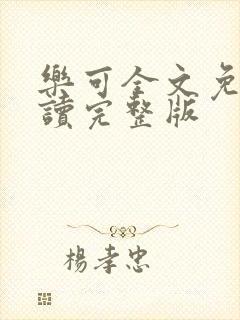 樂可全文免
讀完整版
楊孝忠